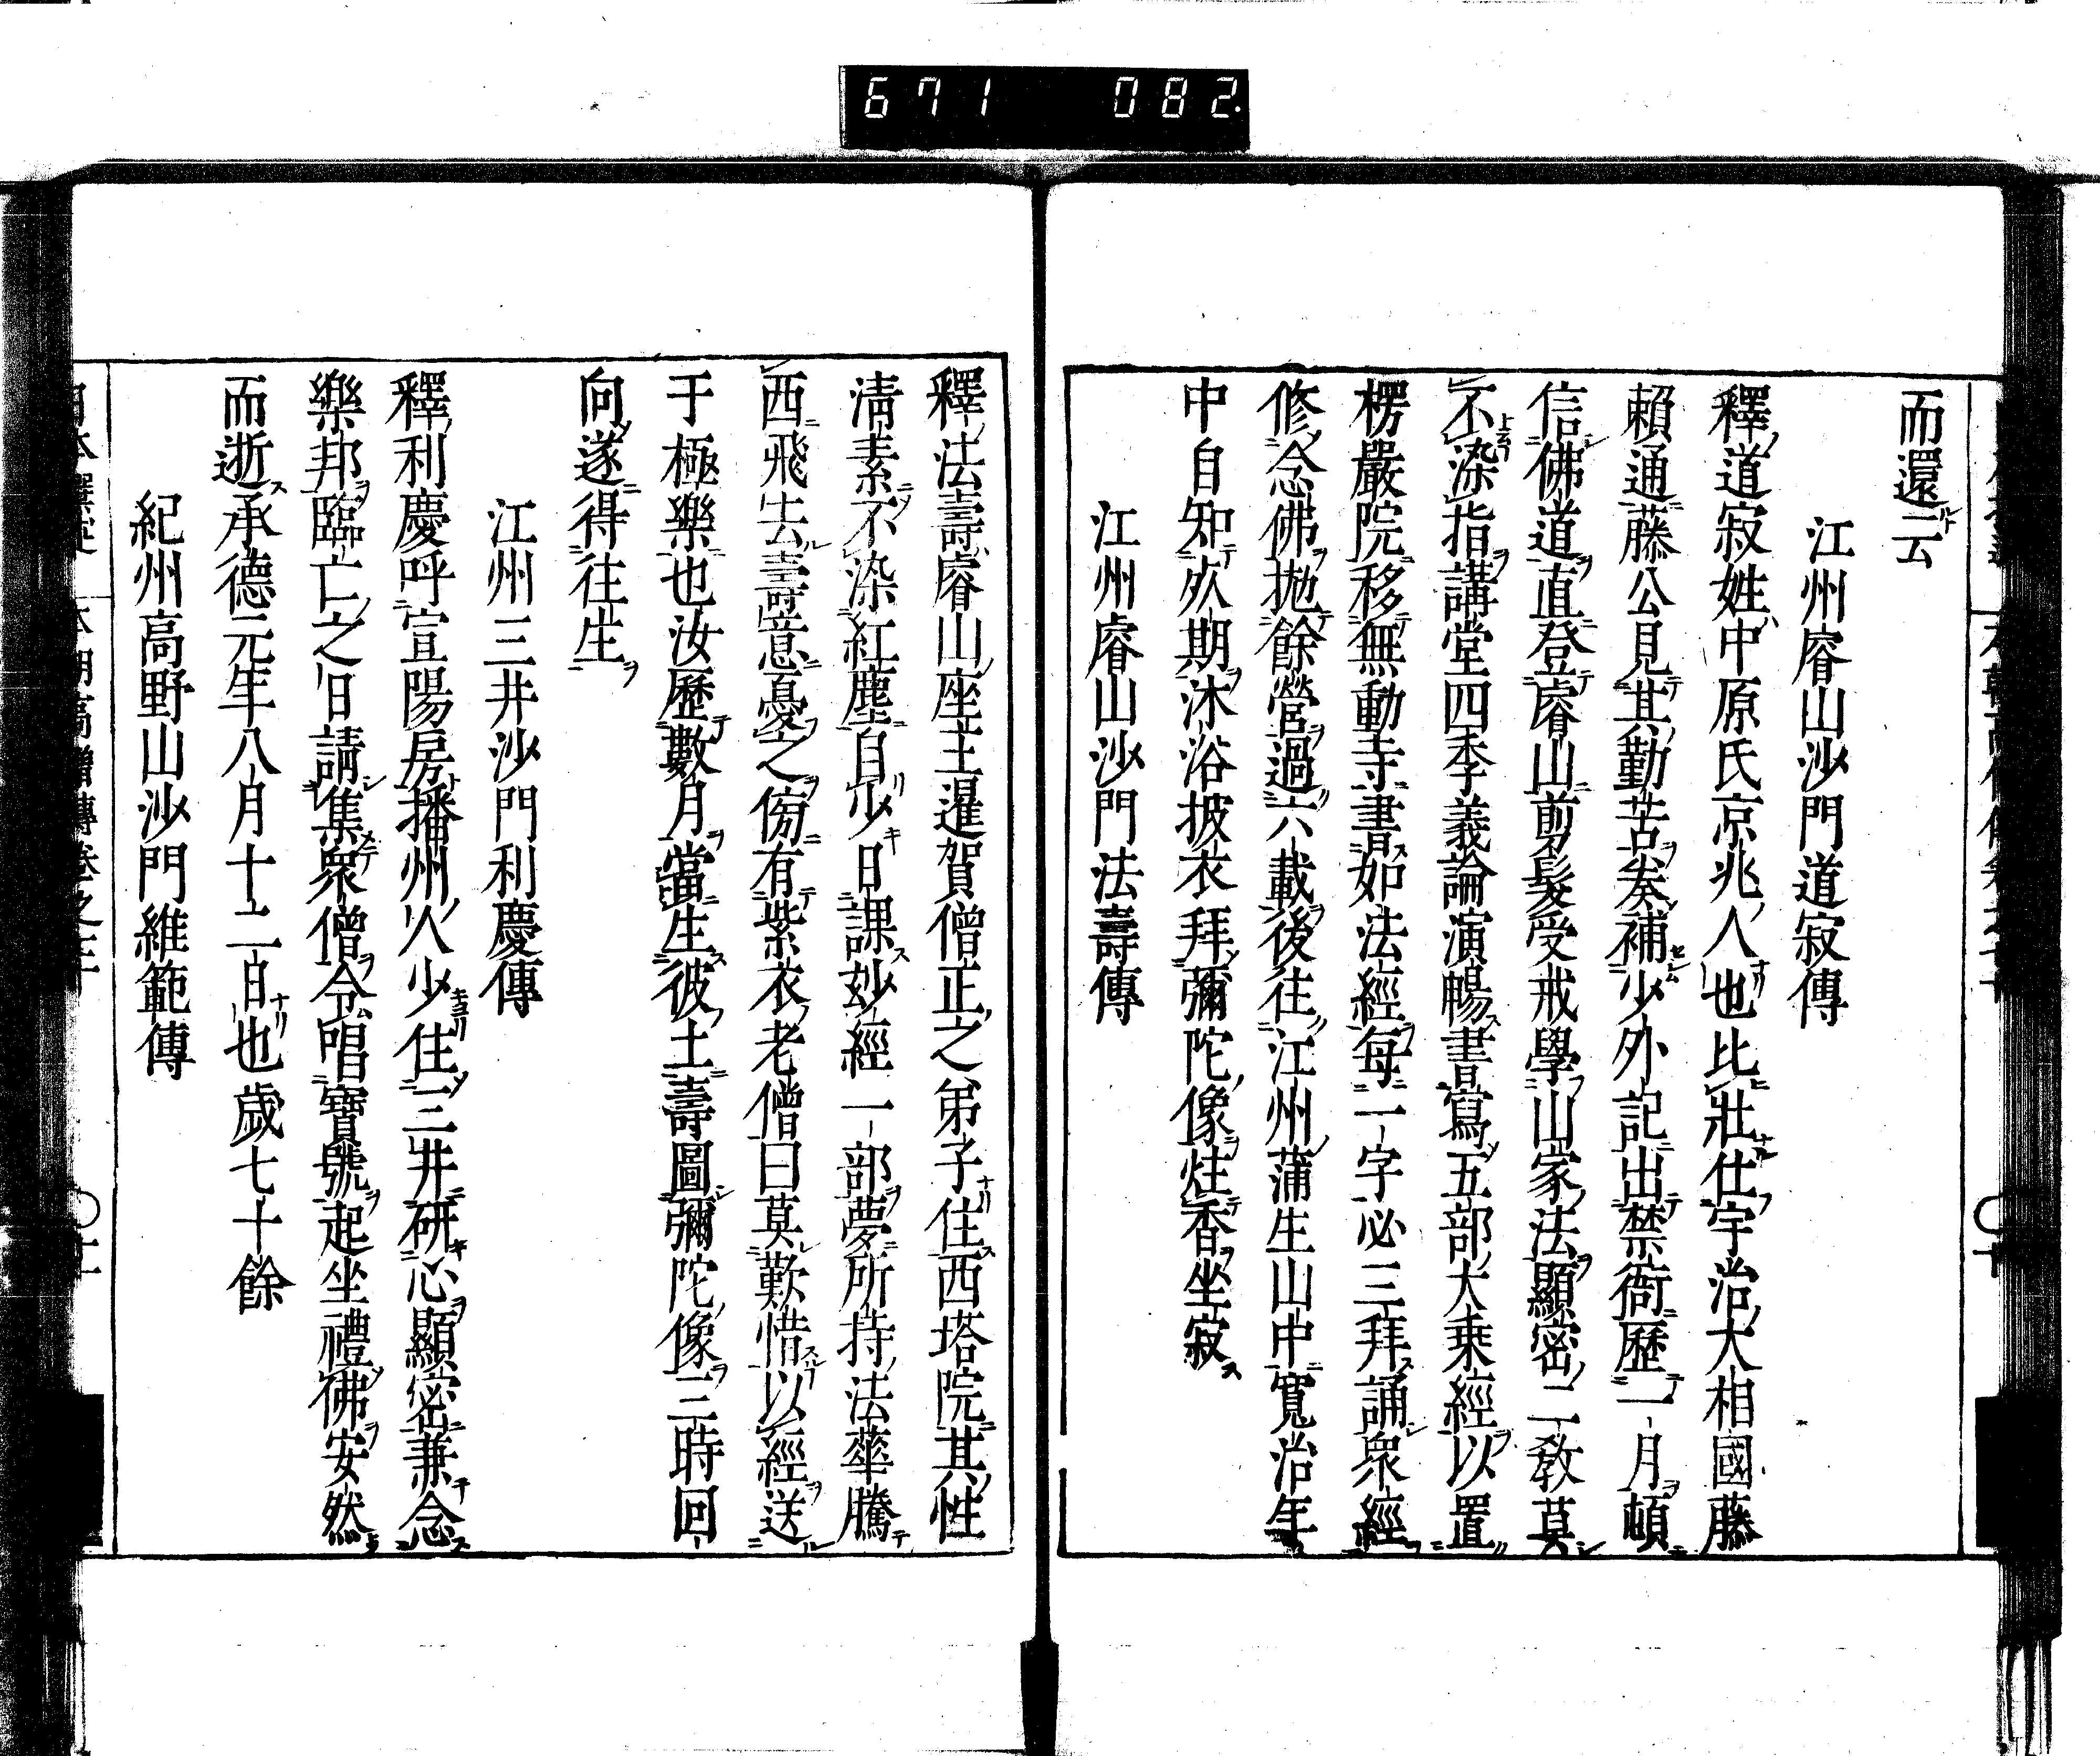 671 082
而還云
江州睿山沙門道寂傳
釋道寂姓中原氏京兆人也比壯仕宇治大相國藤
賴通藤公見其勤苦奏補少外記出禁衙歷一月頓
信佛道直登睿山剪髮受戒學山家法顯密二教莫
不染指講堂四季義論演暢書寫五部大乘經以置
楞嚴院移無動寺書如法經每一字必三拜誦衆經
修念佛拋餘營過六載後往江州蒲生山中寬治年
中自知死期沐浴披衣拜彌陀像炷香坐寂
江州睿山沙門法壽傳
釋法壽睿山座主暹賀僧正之弟子住西塔院其性
淸素不染紅塵自少日課妙經一部夢所持法華騰
西飛去壽意憂之傍有紫衣老僧曰莫歎惜以經送
于極樂也汝歷數月當生彼土壽圖彌陀像三時回
向遂得往生
江州三井沙門利慶傳
釋利慶呼宣陽房播州人少住三井研心顯密兼念
樂邦臨亡之日請集衆僧令唱寶號起坐禮佛安然
而逝承德元年八月十二日也歲七十餘
紀州高野山沙門維範傳